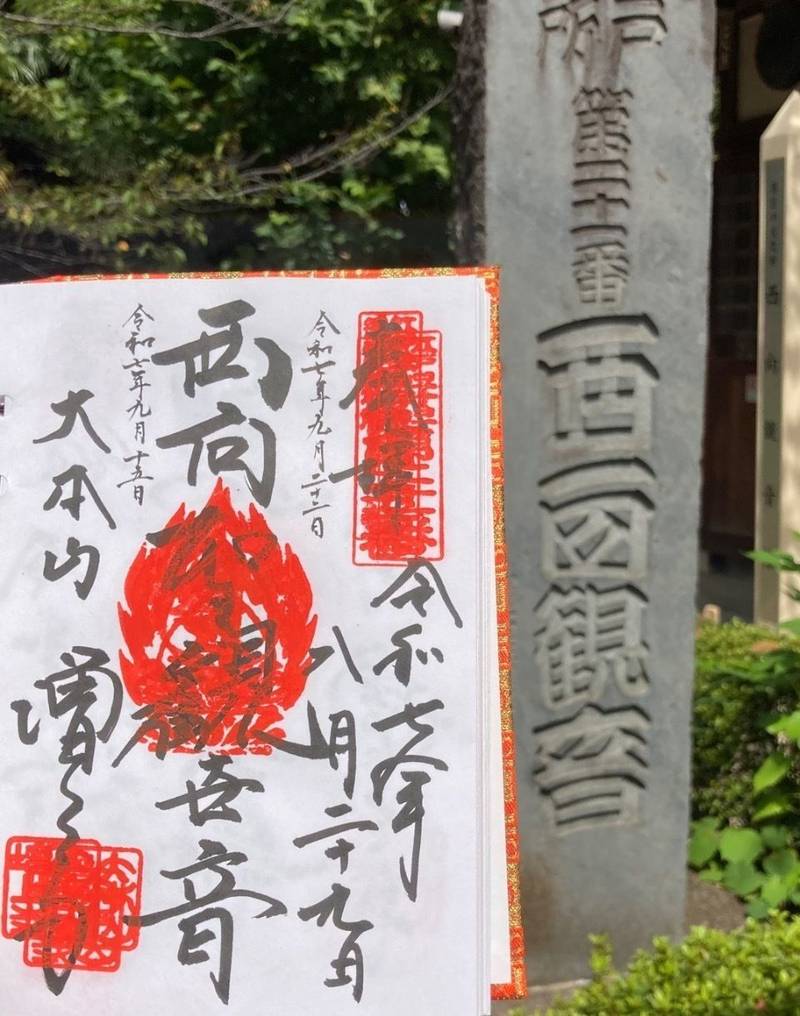 奉拝
令和七年
八月二十九日
令和七年九月二十二日
西向聖観世音
令和七年九月十五日
大本山 増上寺
第二十一番
西向観音
西向観音